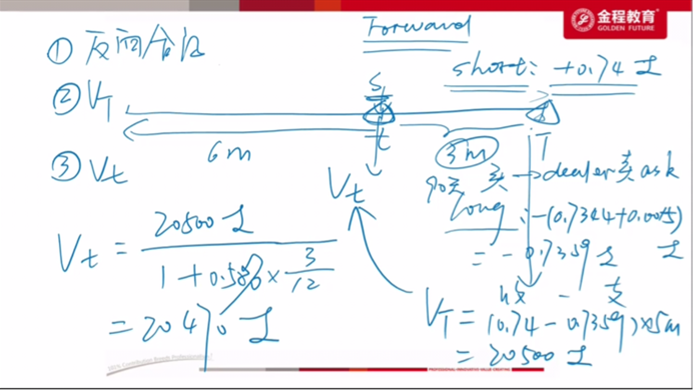 Forward
金程教育
GOLDEN FUTURE
① 反向合约
short: +0.74 £
② V_T
S_t
t
T
6m
3m
③ V_t
V_t
90天 买 → dealer卖 ask
long: -(0.7344+0.0015)
= -0.7359 £ £
V_t = 20500 £ / 1+0.58%×3/12
= 20470 £
收 - 支
V_T = (0.74-0.7359)×5m
= 20500 £